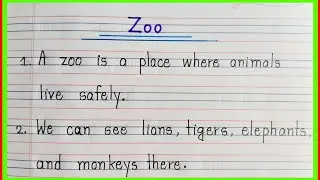 Zoo
1. A zoo is a place where animals
live safely.
2. We can see lions, tigers, elephants,
and monkeys there.